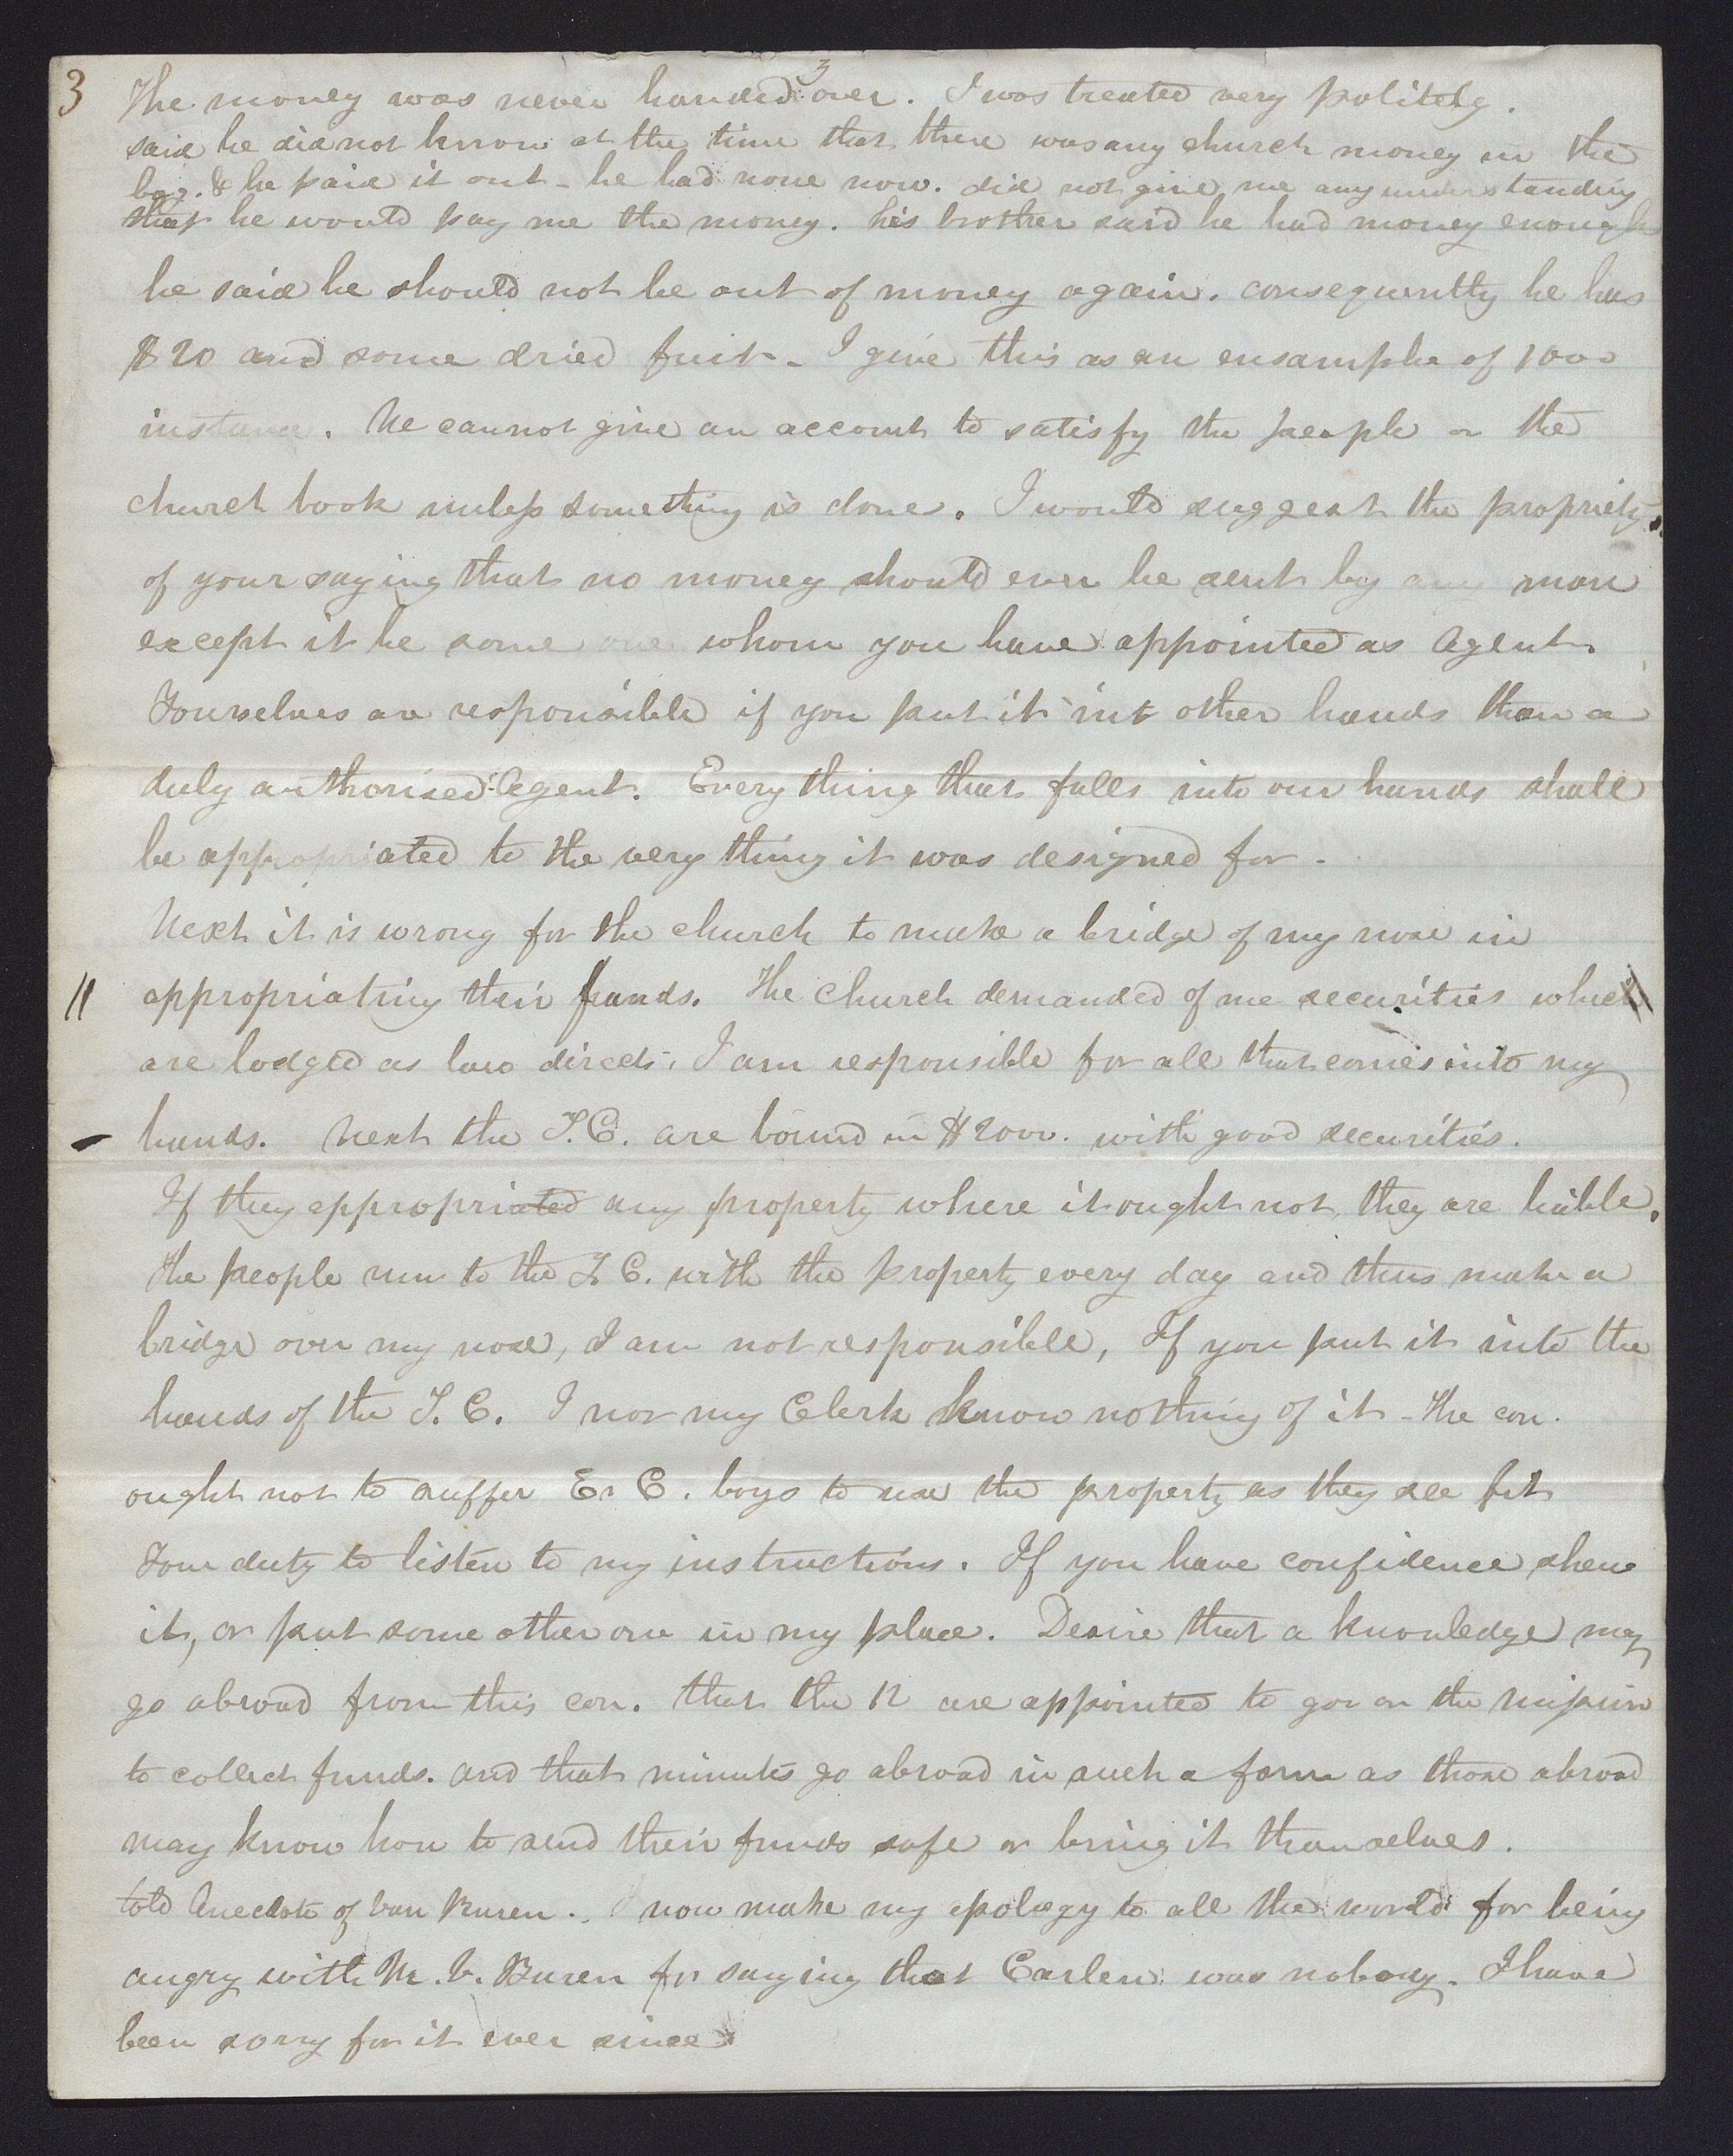 3
3
The money was never handed over. I was treated very politely.
said he did not know at the time that there was any church money in the
bag. & he paid it out - he had none now. did not give me any understanding
that he would pay me the money. his brother said he had money enough
he said he should not be out of money again. consequently he has
$20 and some dried fruit - I give this as an ensample of 1000
instance. We cannot give an account to satisfy the people or the
church book unless something is done. I would suggest the propriety
of your saying that no money should ever be sent by any man
except it be some one whom you have appointed as Agent.
Yourselves are responsible if you put it int other hands than a
duly authorised Agent. Every thing that falls into our hands shall
be appropriated to the very thing it was designed for.
Next it is wrong for the church to make a bridge of my nose in
11 appropriating their funds. The church demanded of me securities which
are lodged as law directs. I am responsible for all that comes into my
- hands. Next the T.C. are bound in $2000. with good securities.
If they appropriated any property where it ought not, they are liable.
the people run to the T.C. with the property every day and thus make a
bridge over my nose, I am not responsible, If you put it into the
hands of the T.C. I nor my Clerk know nothing of it - The con.
ought not to suffer Er C. boys to use the property as they see fit
Your duty to listen to my instructions. If you have confidence shew
it, or put some other one in my place. Desire that a knowledge may
go abroad from this con. that the 12 are appointed to go on the mission
to collect funds. and that minutes go abroad in such a form as those abroad
may know how to send their funds safe or bring it themselves.
told Anecdote of Van Buren. I now make my apology to all the world for being
angry with M. V. Buren for saying that Carlen was nobody. I have
been sorry for it ever since